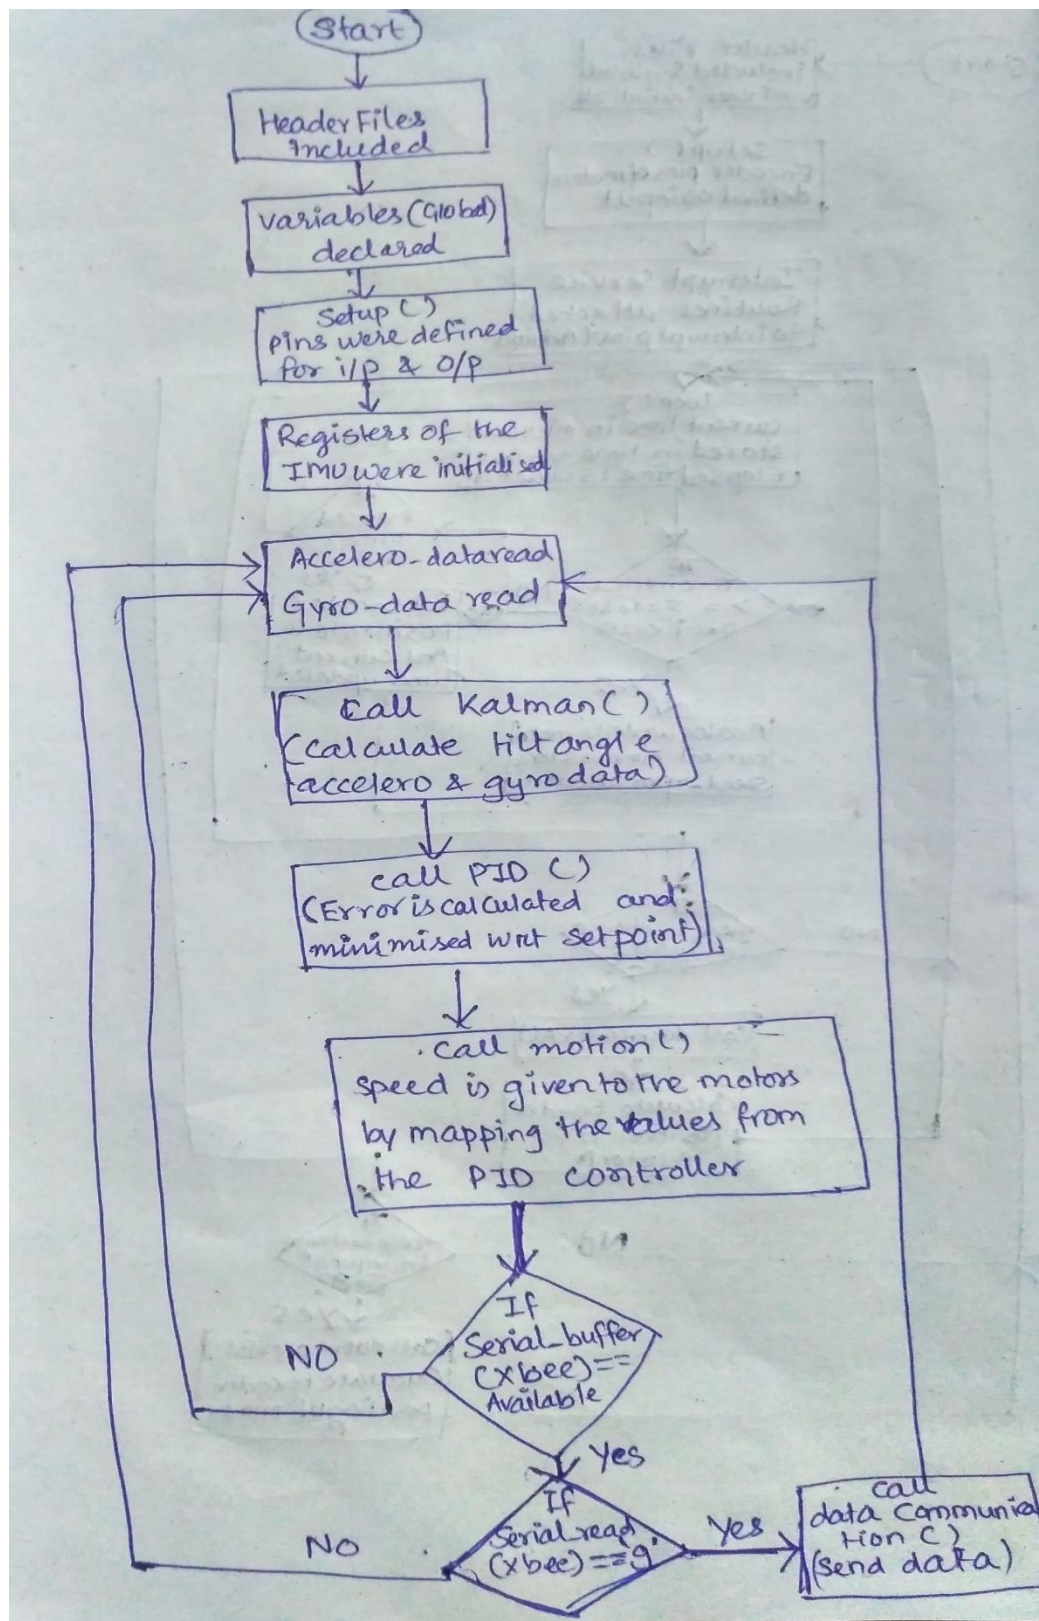 Start
Header Files
included
variables (Global)
declared
Setup ()
pins were defined
for i/p & o/p
Registers of the
IMU were initialised
Accelero-data read
Gyro-data read
Call Kalman()
(calculate tilt angle
accelero & gyro data)
call PID ()
(Error is calculated and
minimised wrt setpoint)
call motion()
speed is given to the motors
by mapping the values from
the PID controller
If
Serial_buffer
(xbee)==
Available
NO
Yes
If
Serial read
(xbee)=='g'
NO
Yes
call
data Communica
tion ()
(send data)